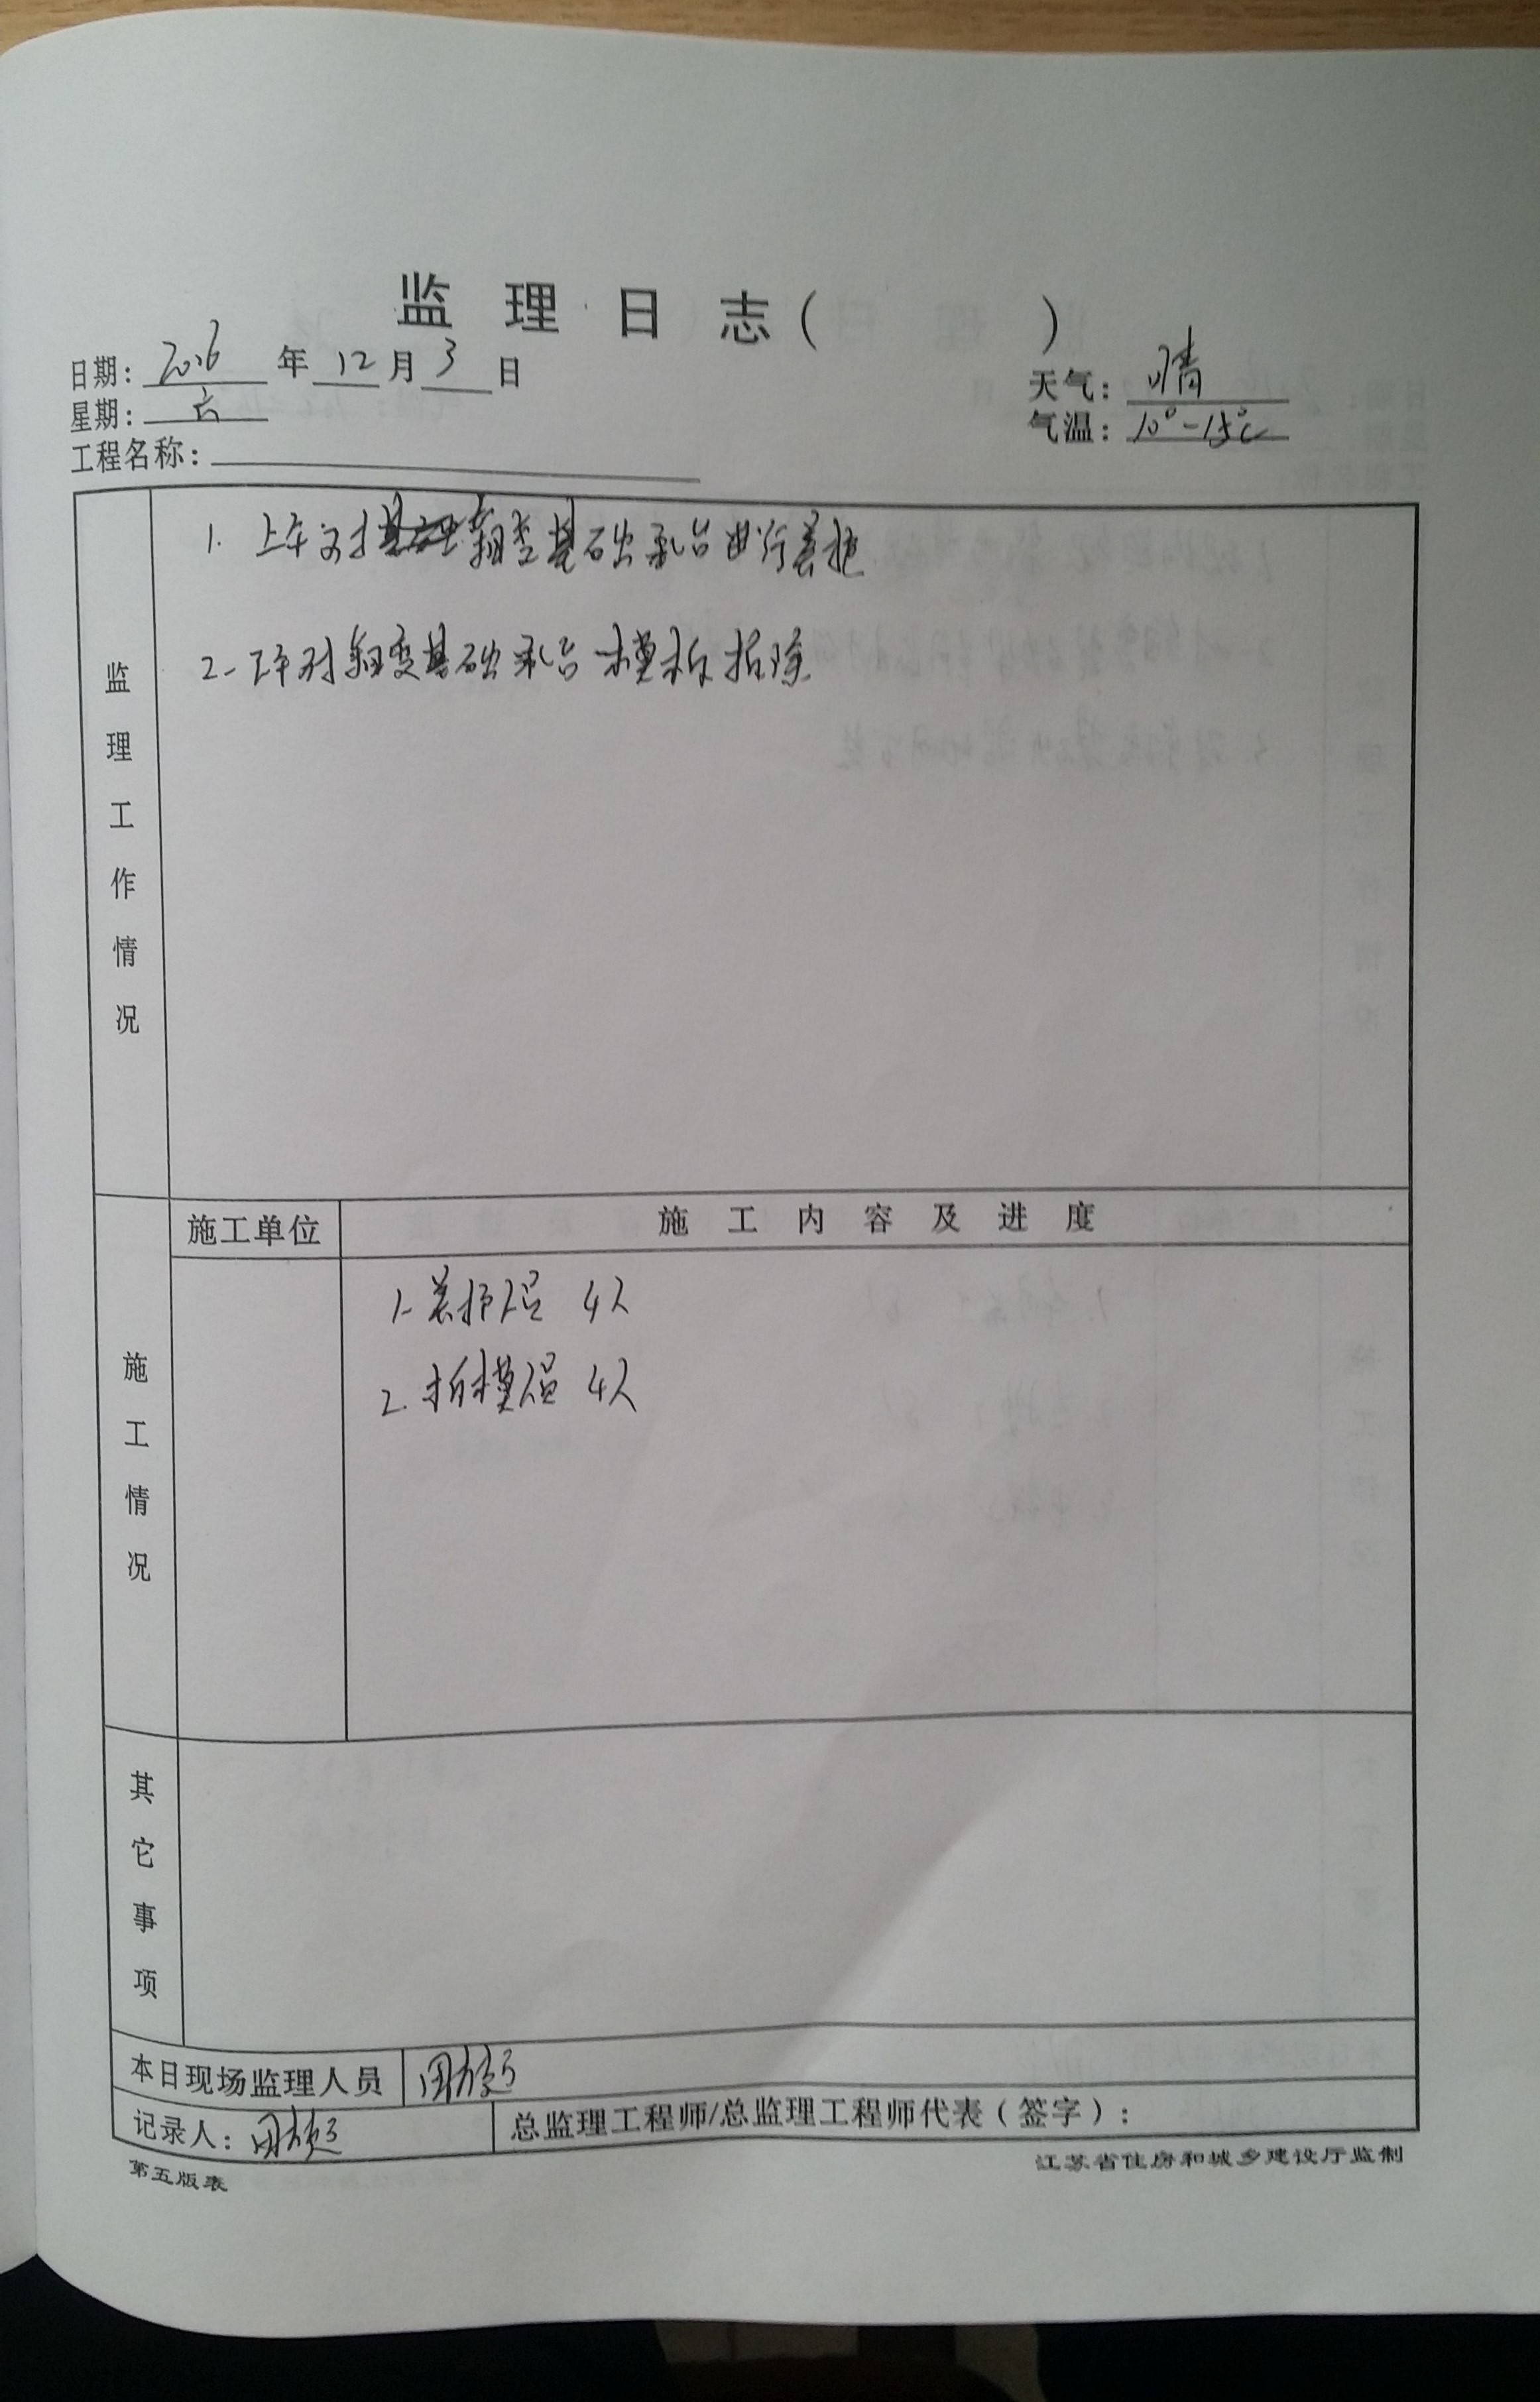 监理日志( )
日期: 2016 年 12 月 3 日
天气: 晴
星期: 六
气温: 10°-15℃
工程名称:
监理工作情况
1. 上午对箱变基础承台进行养护
2- 下午对箱变基础承台模板拆除
施工单位 施工内容及进度
施工情况
1- 养护人员 4人
2. 拆模人员 4人
其它事项
本日现场监理人员
记录人:
总监理工程师/总监理工程师代表(签字):
第五版表
江苏省住房和城乡建设厅监制